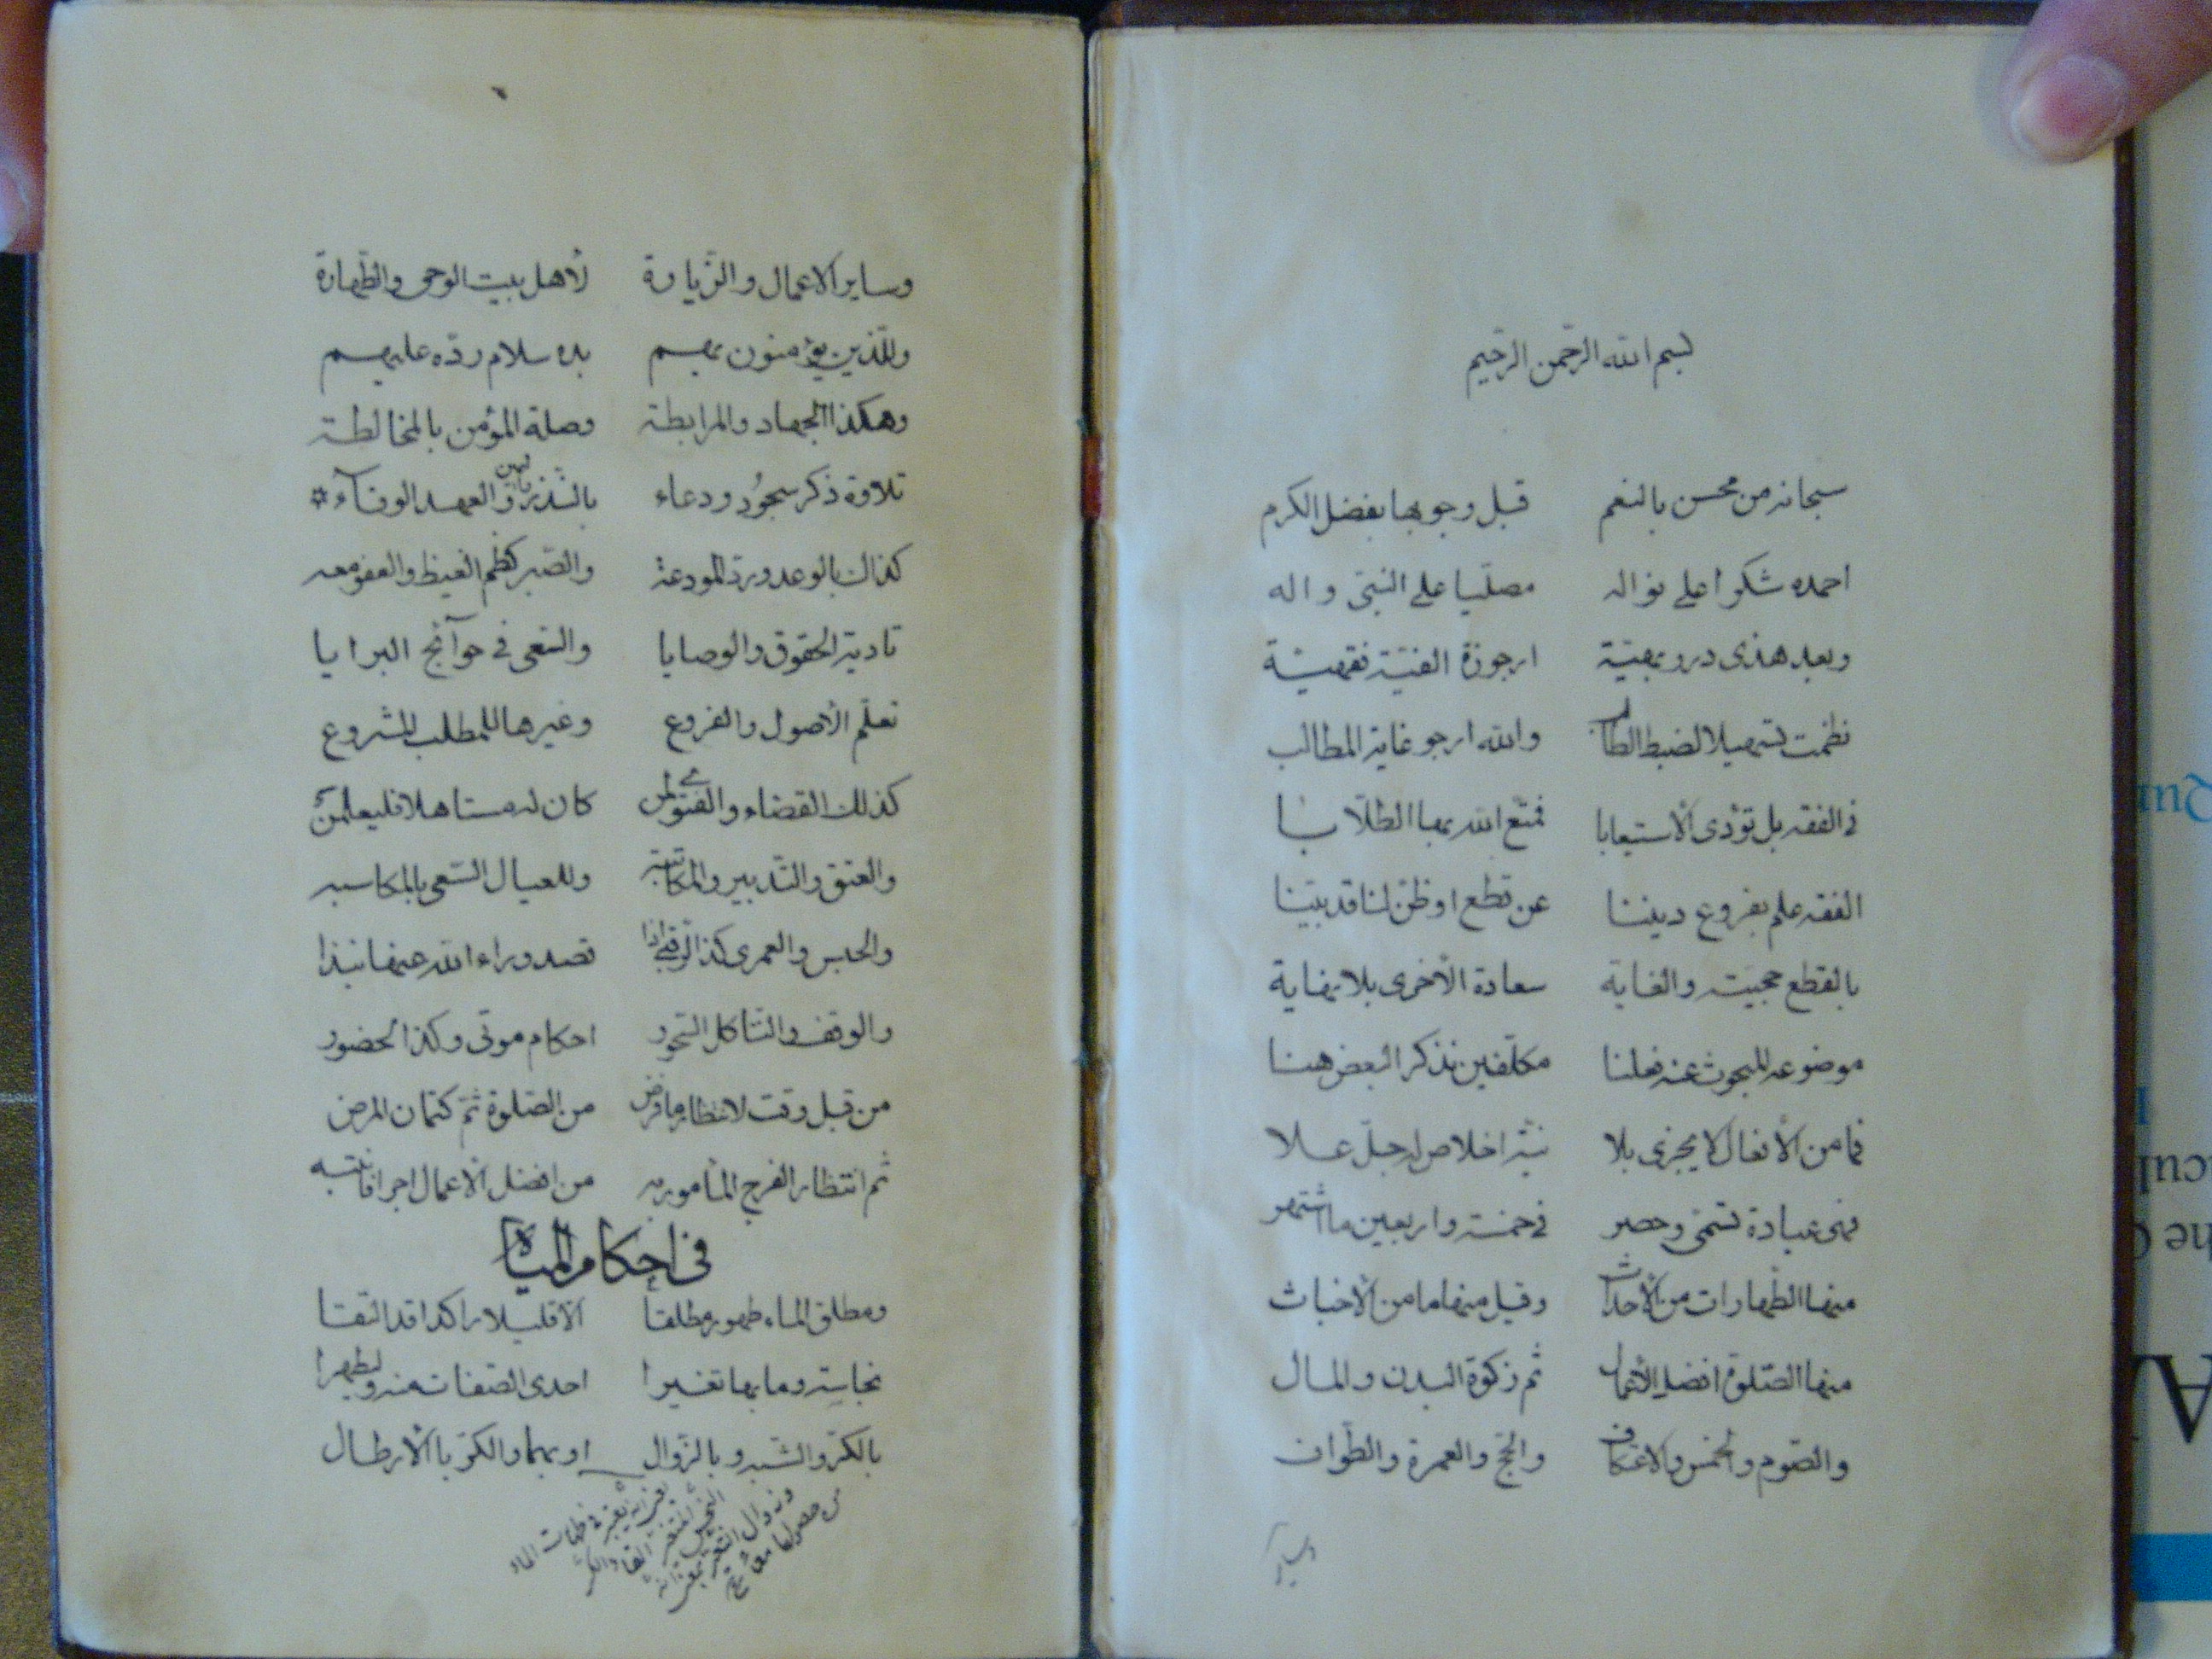 بسم الله الرحمن الرحيم
سبحانه من محسن بالنعم قبل وجوبها بفضل الكرم
احمده شكرا على نواله مصلّيا على النبىّ واله
وبعد هذى درو بهيّة ارجوزة الفيّة فقهيّة
نظمت تسهيلا لضبط الطالب والله ارجو غاية المطالب
فى الفقه بل تؤدى الأستيعابا فمتّع الله بها الطلّابا
الفقه علم بفروع ديننا عن قطع او ظنّ لنا قد بيّنا
بالقطع حجيّته والغاية سعادة الأخرى بلا نهاية
موضوعه المبحوث عنه فعلنا مكلّفين نذكر البعض هنا
فما من الأفعال لا يجزى بلا نيّة اخلاص له جلّ علا
فهى عبادة تسمّى وحصر فى خمسة واربعين ما اشتهر
منها الطّهارات من الأحداث وقيل منها ما من الأخباث
منها الصّلوة افضل الأعمال ثم زكوة البدن والمال
والصّوم والخمس والاعتكاف والحجّ والعمرة والطّواف
وساير
وساير الاعمال والزّيارة لأهل بيت الوحى والطّهارة
وللّذين يؤمنون بهم بدء سلام ردّه عليهم
وهكذا الجهاد والمرابطة وصلة المؤمن بالمخالطة
تلاوة ذكر سجود ودعاء بالنّذر واليمين والعهد الوفآء
كذاك بالوعد وردّ المودعة والصّبر كظم الغيظ والعفو معه
تادية الحقوق والوصايا والسّعى فى حوآئج البرايا
تعلّم الأصول والفروع وغيرها للمطلب المشروع
كذلك القضاء والفتوى لمن كان له مستاهلا فليعلمنّ
والعتق والتّدبير والمكاتبة وللعيال السّعى بالمكاسبه
والحبس والعمرى كذا الرّقبى اذا قصد وراء الله عنها نبذا
والوقف والتّاكل السّحور احكام موتى وكذا الحضور
من قبل وقت لانتظار ما فرض من الصّلوة ثمّ كتمان المرض
ثم انتظار الفرج المأمور به من افضل الأعمال اجرا فانتبه
فى احكام المياه
ومطلق الماء طهور مطلقا الّا قليلا راكدا قد التقا
نجاسة وما بها تغيّرا احدى الصّفات منه وليطهرا
بالكرّ والشّبه وبالزّوال او بهما والكرّ بالأرطال